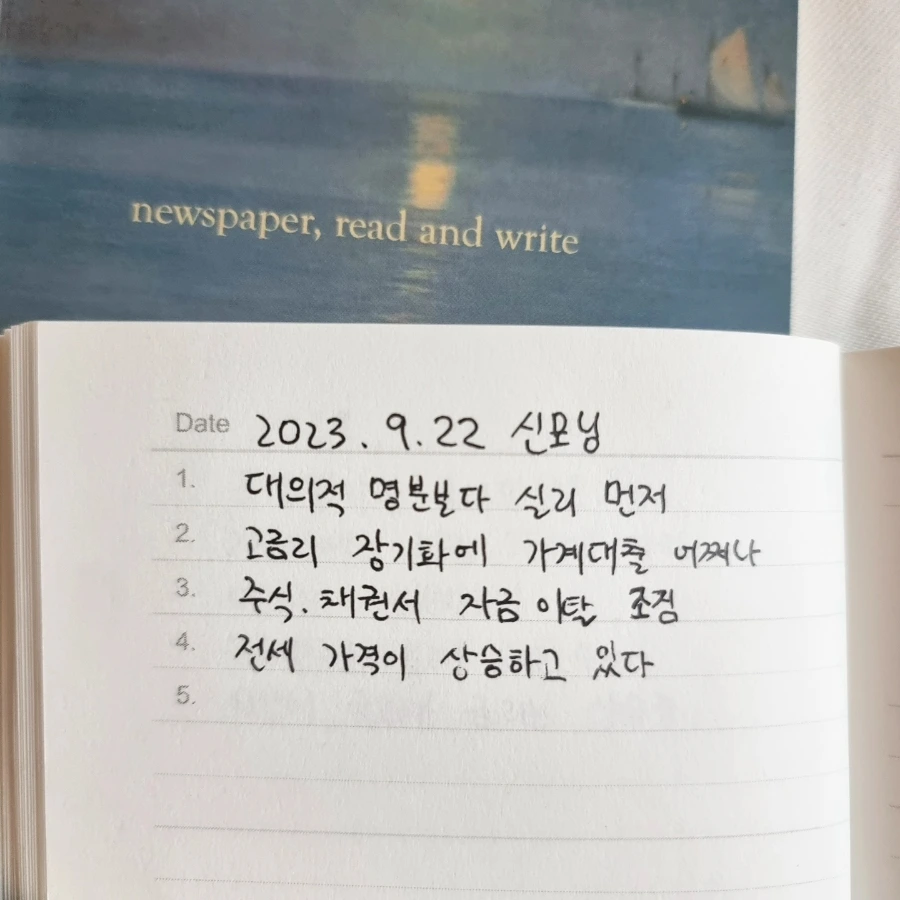 newspaper, read and write
Date 2023. 9. 22 신모닝
1. 대의적 명분보다 실리 먼저
2. 고금리 장기화에 가계대출 어쩌나
3. 주식.채권서 자금 이탈 조짐
4. 전세 가격이 상승하고 있다
5.